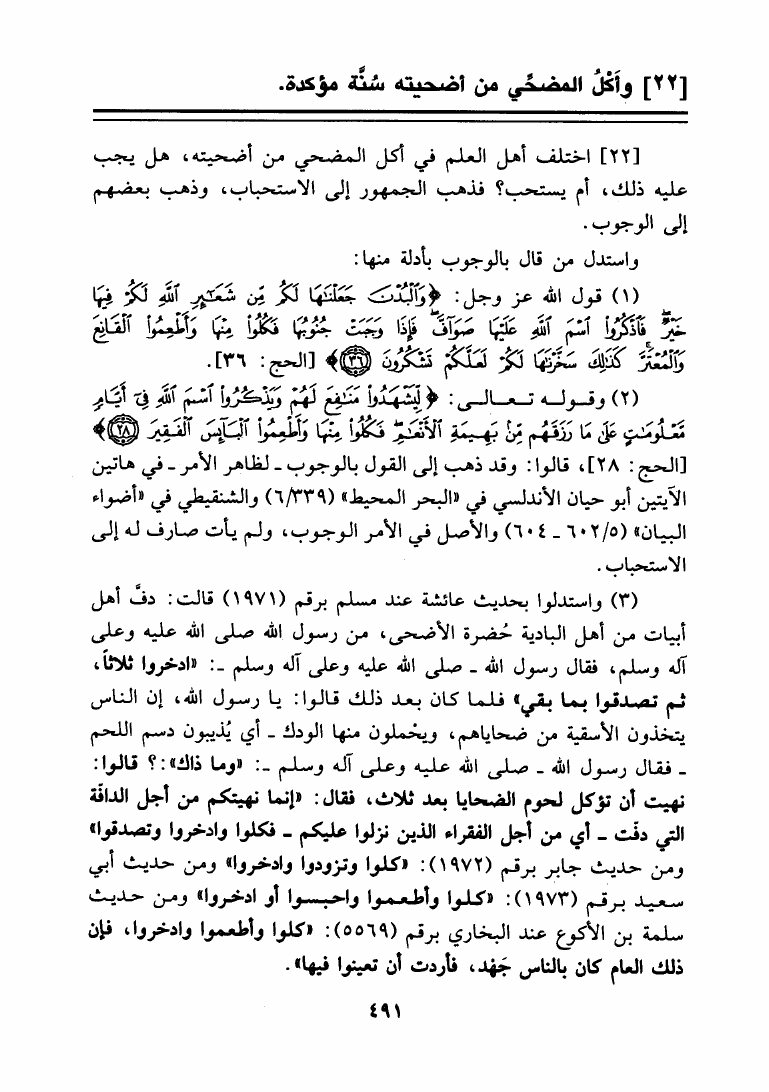 [٢٢] وأَكْلُ المضحِّي من أضحيته سُنَّة مؤكدة.
[٢٢] اختلف أهل العلم في أكل المضحي من أضحيته، هل يجب
عليه ذلك، أم يستحب؟ فذهب الجمهور إلى الاستحباب، وذهب بعضهم
إلى الوجوب.
واستدل من قال بالوجوب بأدلة منها:
(١) قول الله عز وجل: ﴿وَٱلْبُدْنَ جَعَلْنَٰهَا لَكُم مِّن شَعَٰٓئِرِ ٱللَّهِ لَكُمْ فِيهَا
خَيْرٌۖ فَٱذْكُرُواْ ٱسْمَ ٱللَّهِ عَلَيْهَا صَوَآفَّۖ فَإِذَا وَجَبَتْ جُنُوبُهَا فَكُلُواْ مِنْهَا وَأَطْعِمُواْ ٱلْقَانِعَ
وَٱلْمُعْتَرَّۚ كَذَٰلِكَ سَخَّرْنَٰهَا لَكُمْ لَعَلَّكُمْ تَشْكُرُونَ ٣٦﴾ [الحج: ٣٦].
(٢) وقوله تعالى: ﴿لِّيَشْهَدُواْ مَنَٰفِعَ لَهُمْ وَيَذْكُرُواْ ٱسْمَ ٱللَّهِ فِىٓ أَيَّامٍ
مَّعْلُومَٰتٍ عَلَىٰ مَا رَزَقَهُم مِّنۢ بَهِيمَةِ ٱلْأَنْعَٰمِۖ فَكُلُواْ مِنْهَا وَأَطْعِمُواْ ٱلْبَآئِسَ ٱلْفَقِيرَ ٢٨﴾
[الحج: ٢٨]، قالوا: وقد ذهب إلى القول بالوجوب ـ لظاهر الأمر ـ في هاتين
الآيتين أبو حيان الأندلسي في «البحر المحيط» (٦/٣٣٩) والشنقيطي في «أضواء
البيان» (٥/٦٠٢ ـ ٦٠٤) والأصل في الأمر الوجوب، ولم يأت صارف له إلى
الاستحباب.
(٣) واستدلوا بحديث عائشة عند مسلم برقم (١٩٧١) قالت: دفَّ أهل
أبيات من أهل البادية حُضرة الأضحى، من رسول الله صلى الله عليه وعلى
آله وسلم، فقال رسول الله ـ صلى الله عليه وعلى آله وسلم ـ: «ادخروا ثلاثاً،
ثم تصدقوا بما بقي» فلما كان بعد ذلك قالوا: يا رسول الله، إن الناس
يتخذون الأسقية من ضحاياهم، ويحْملون منها الودك ـ أي يُذيبون دسم اللحم
ـ فقال رسول الله ـ صلى الله عليه وعلى آله وسلم ـ: «وما ذاك»:؟ قالوا:
نهيت أن تؤكل لحوم الضحايا بعد ثلاث، فقال: «إنما نهيتكم من أجل الدافّة
التي دفّت ـ أي من أجل الفقراء الذين نزلوا عليكم ـ فكلوا وادخروا وتصدقوا»
ومن حديث جابر برقم (١٩٧٢): «كلوا وتزودوا وادخروا» ومن حديث أبي
سعيد برقم (١٩٧٣): «كلوا وأطعموا واحبسوا أو ادخروا» ومن حديث
سلمة بن الأكوع عند البخاري برقم (٥٥٦٩): «كلوا وأطعموا وادخروا، فإن
ذلك العام كان بالناس جَهْد، فأردت أن تعينوا فيها».
٤٩١